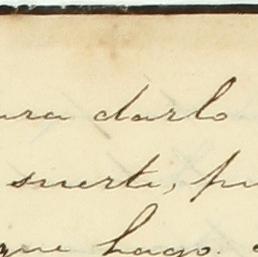 ura darlo
suerte, pu
que hago.